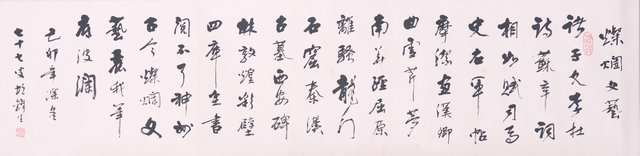 燦爛文藝
諸子文李杜
詩蘇辛詞
相如賦司馬
史右軍帖
摩詰畫漢卿
曲雪芹夢
南華經屈原
離騷龍門
石窟秦漢
古墓西安碑
林敦煌彩壁
四庫全書
閱不了神州
古今燦爛文
藝我筆
底波瀾
己卯年深冬
七十七叟